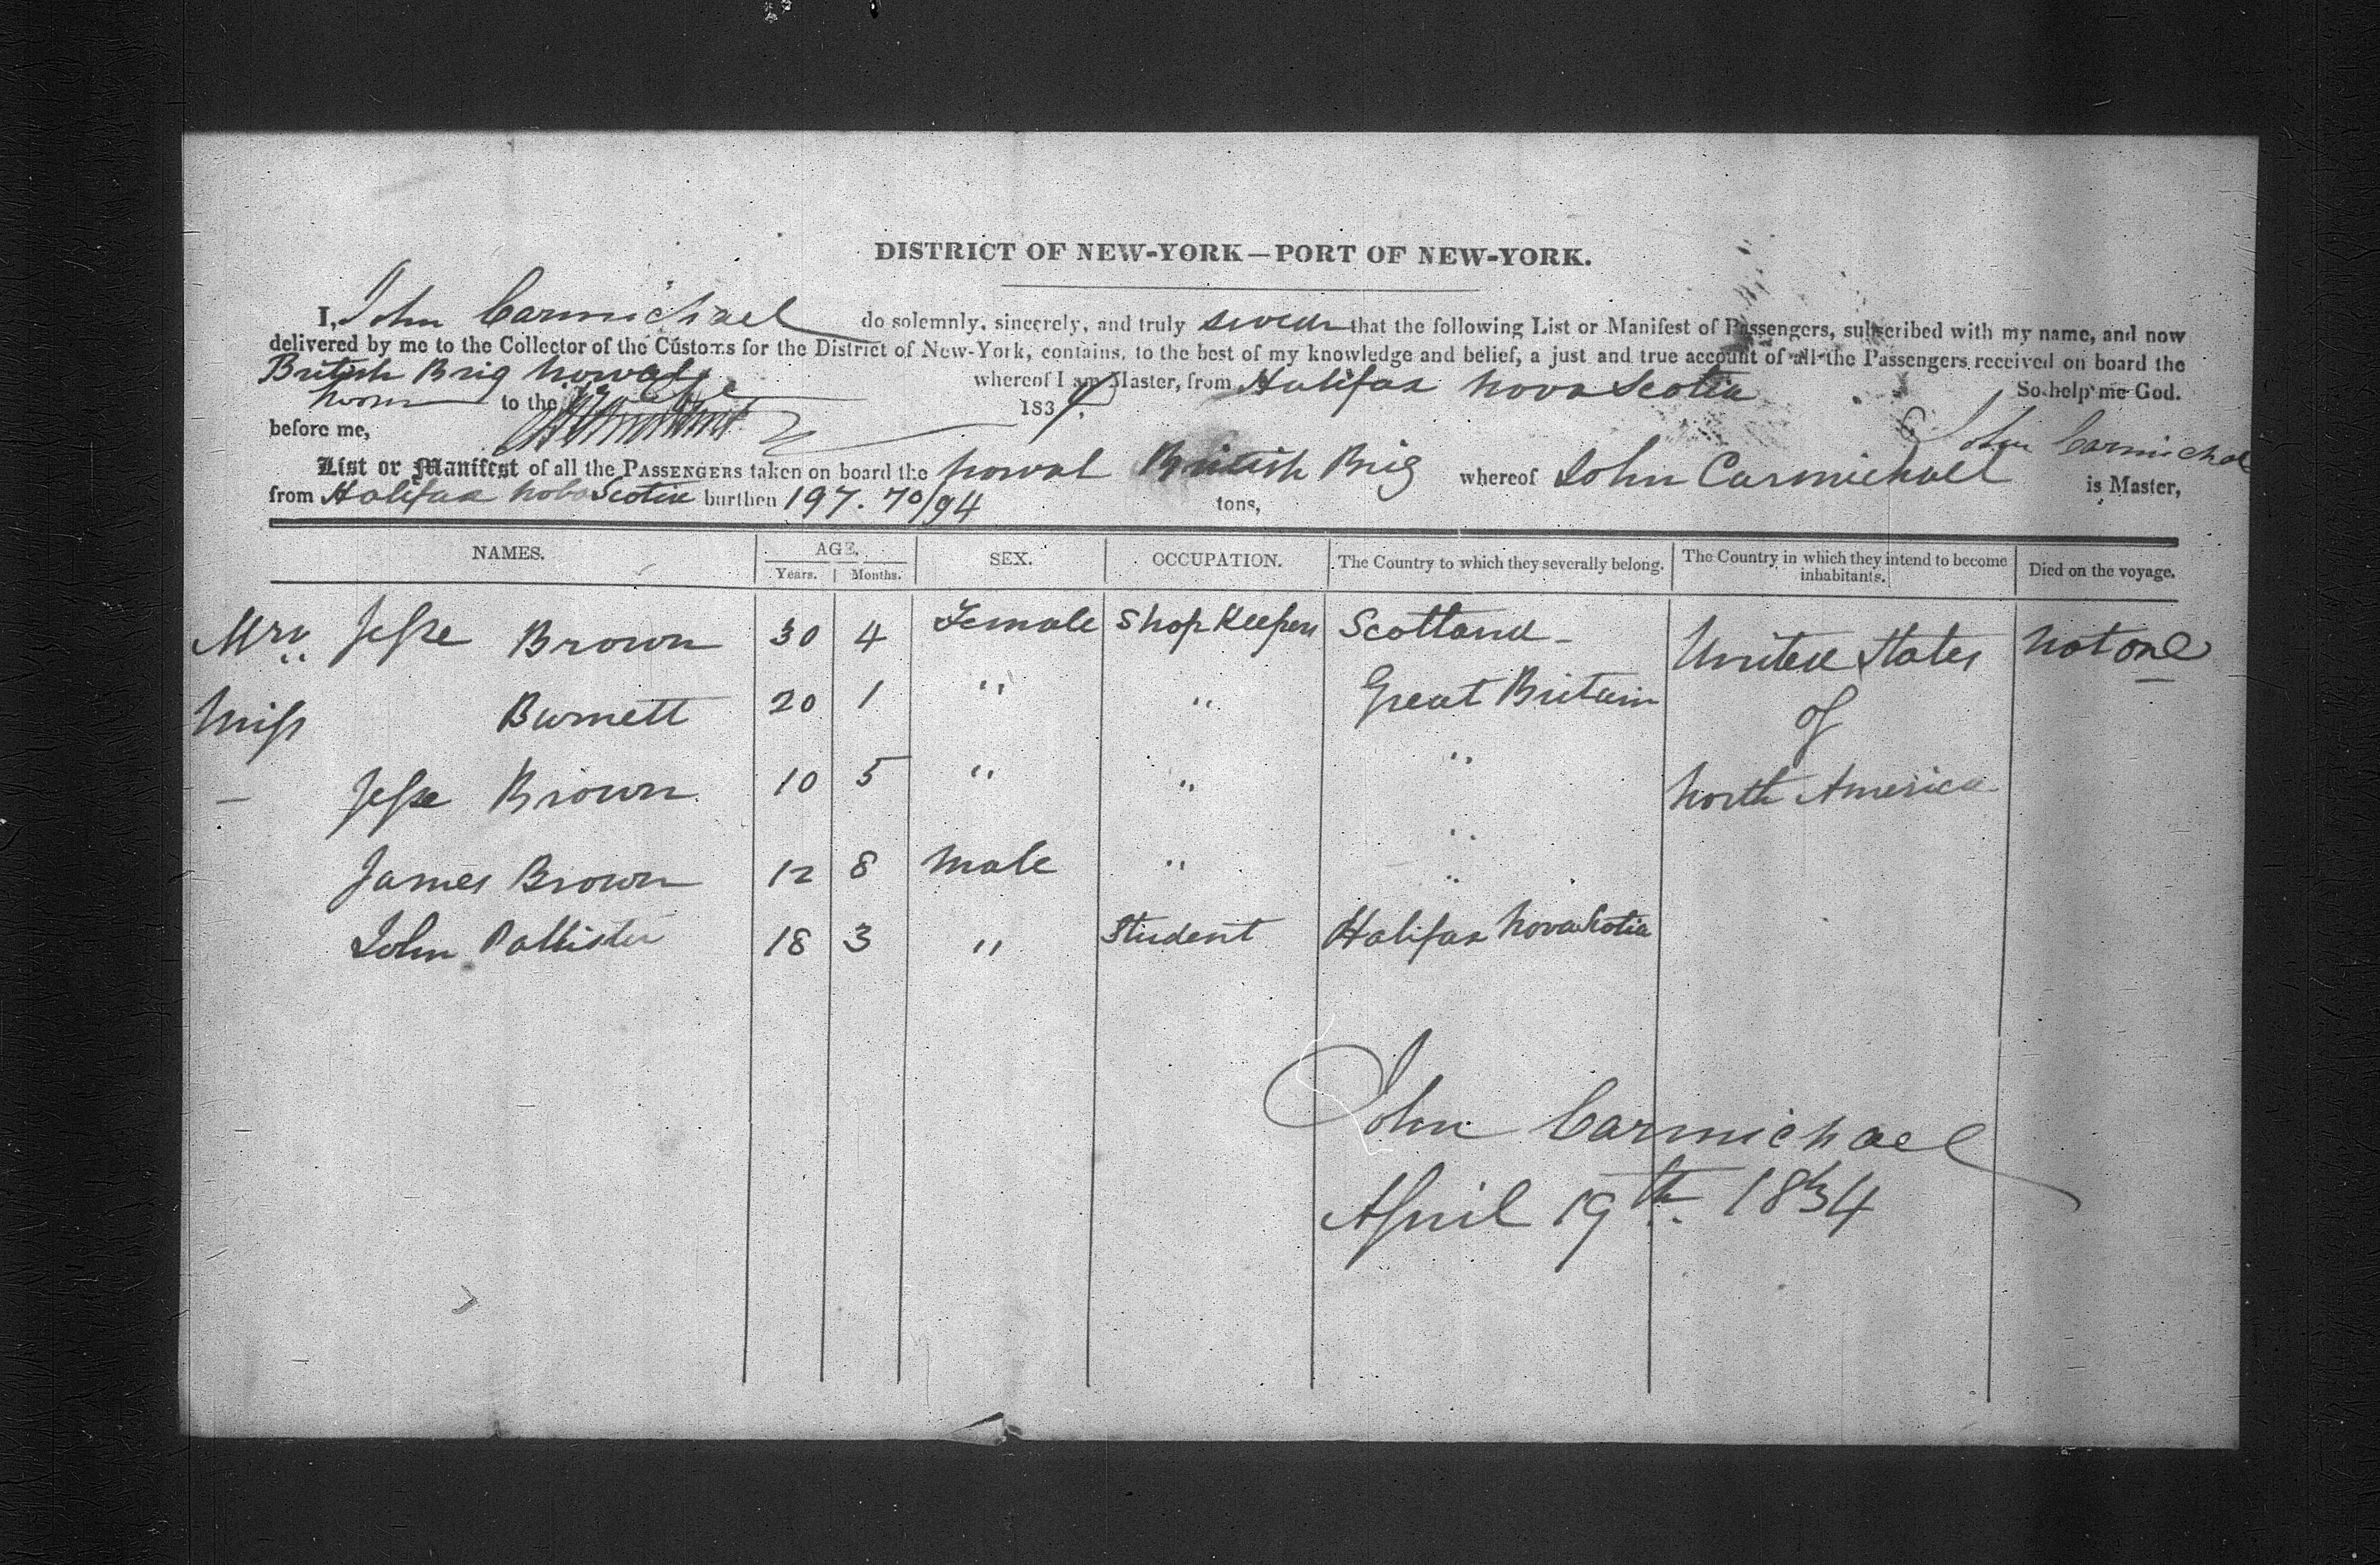 DISTRICT OF NEW-YORK—PORT OF NEW-YORK.
I, John Carmichael do solemnly, sincerely, and truly swear that the following List or Manifest of Passengers, subscribed with my name, and now
delivered by me to the Collector of the Customs for the District of New-York, contains, to the best of my knowledge and belief, a just and true account of all the Passengers received on board the
British Brig Noval whereof I am Master, from Halifax Nova Scotia
to the 1834. So help me God.
before me, John Carmichael
List or Manifest of all the PASSENGERS taken on board the Noval British Brig whereof John Carmichael is Master,
from Halifax Nova Scotia burthen 197. 70/94 tons,
NAMES. AGE. SEX. OCCUPATION. The Country to which they severally belong. The Country in which they intend to become inhabitants. Died on the voyage.
Years. Months.
Mrs Jeſse Brown 30 4 Female Shop Keepers Scotland United States Not one
Miſs Burnett 20 1 " " Great Britain of
— Jeſse Brown 10 5 " " " North America
James Brown 12 8 Male " "
John Pallister 18 3 " Student Halifax Nova Scotia
John Carmichael
April 19th. 1834